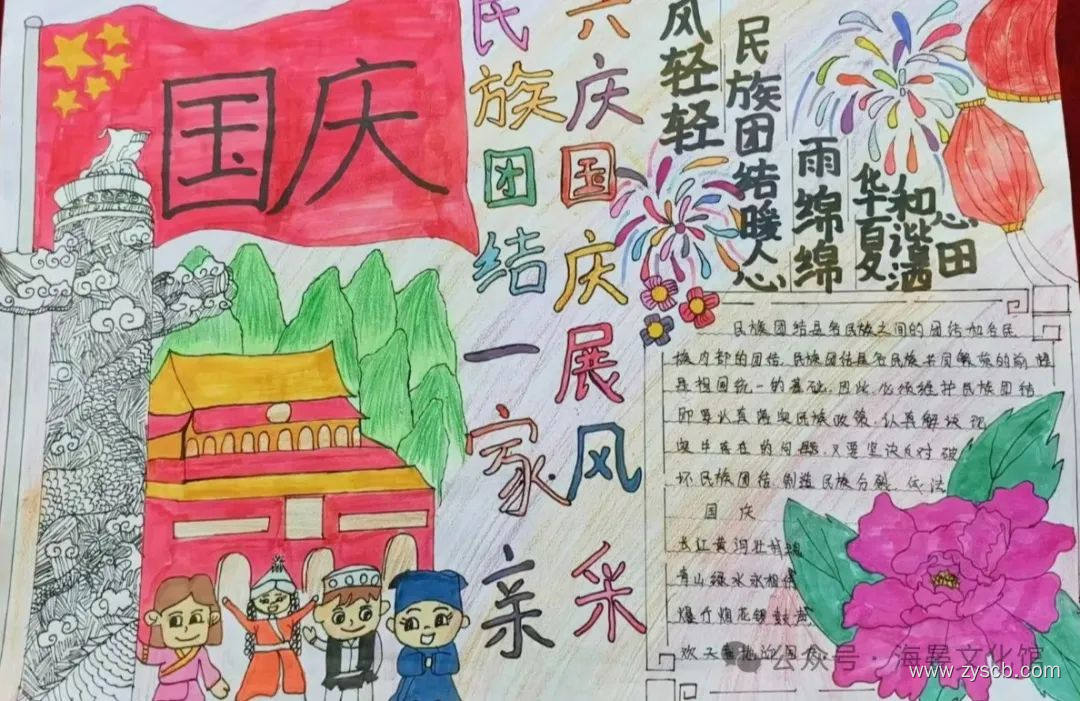 国庆
民族团结一家亲
六庆国庆展风采
风轻轻
民族团结暖人心
雨绵绵
华夏
和谐满
心田
民族团结是各民族之间的团结和各民
族内部的团结.民族团结是各民族共同繁荣的前提
是祖国统一的基础.因此.必须维护民族团结
即要认真落实民族政策.认真解决现
实中存在的问题.又要坚决反对破
坏民族团结.制造民族分裂.依法
国庆
长江黄河壮
青山绿水永相伴
爆竹烟花锣鼓
欢天喜地迎国庆
公众号·海暴文化馆
www.zyscb.com